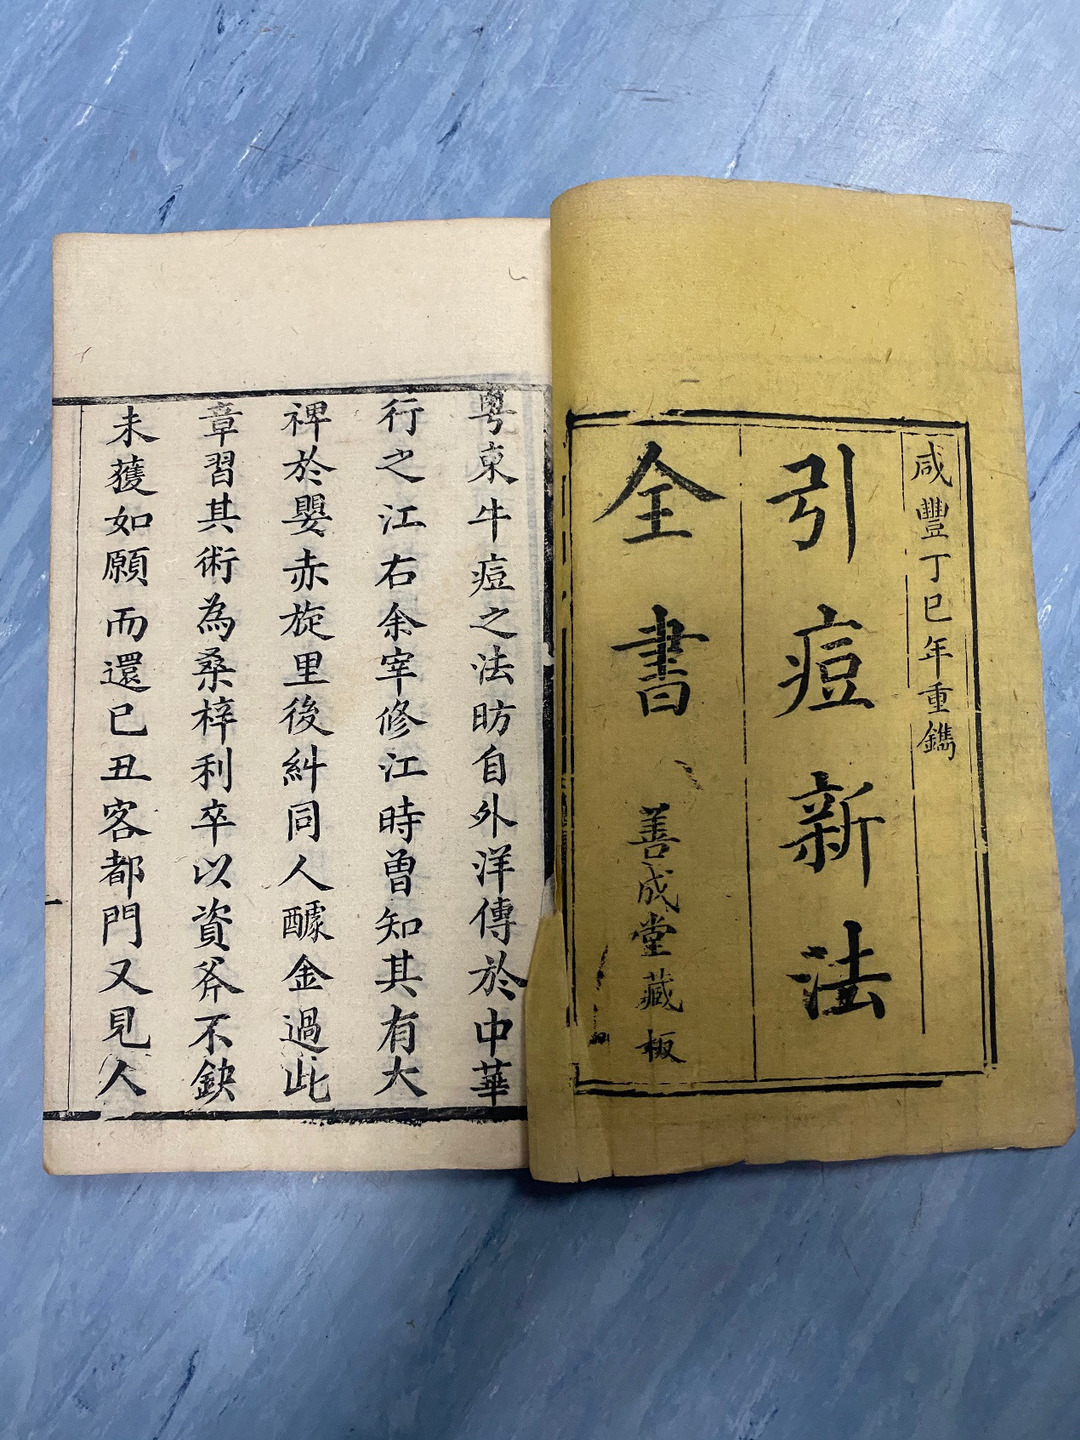 咸豐丁巳年重鐫
引痘新法
全書
善成堂藏板
粵東牛痘之法昉自外洋傳於中華
行之江右余宰修江時曾知其有大
裨於嬰赤旋里後糾同人醵金過此
章習其術為桑梓利卒以資斧不鈌
未獲如願而還已丑客都門又見人